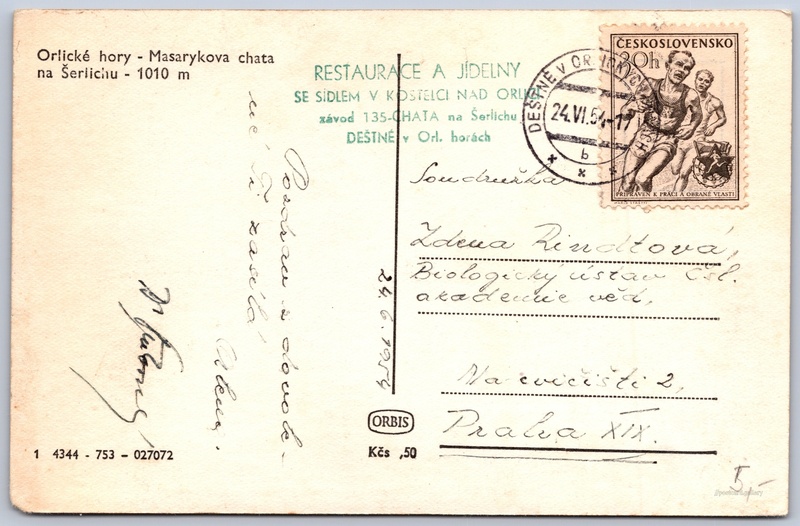 Orlické hory - Masarykova chata
na Šerlichu - 1010 m
RESTAURACE A JÍDELNY
SE SÍDLEM V KOSTELCI NAD ORLICÍ
závod 135-CHATA na Šerlichu
DEŠTNÉ v Orl. horách
DEŠTNÉ V ORLICKÝCH HORÁCH
24.VI.54-17
b
ČESKOSLOVENSKO
30h
PŘIPRAVEN K PRÁCI A OBRANĚ VLASTI
Pozdrav z dovole-
né Ti zasílá
24.6.1954
Soudružka
Zdena Rindtová,
Biologický ústav Čsl.
akademie věd,
Na cvičišti 2,
Praha XIX.
ORBIS
Kčs ,50
1 4344 - 753 - 027072
5,-